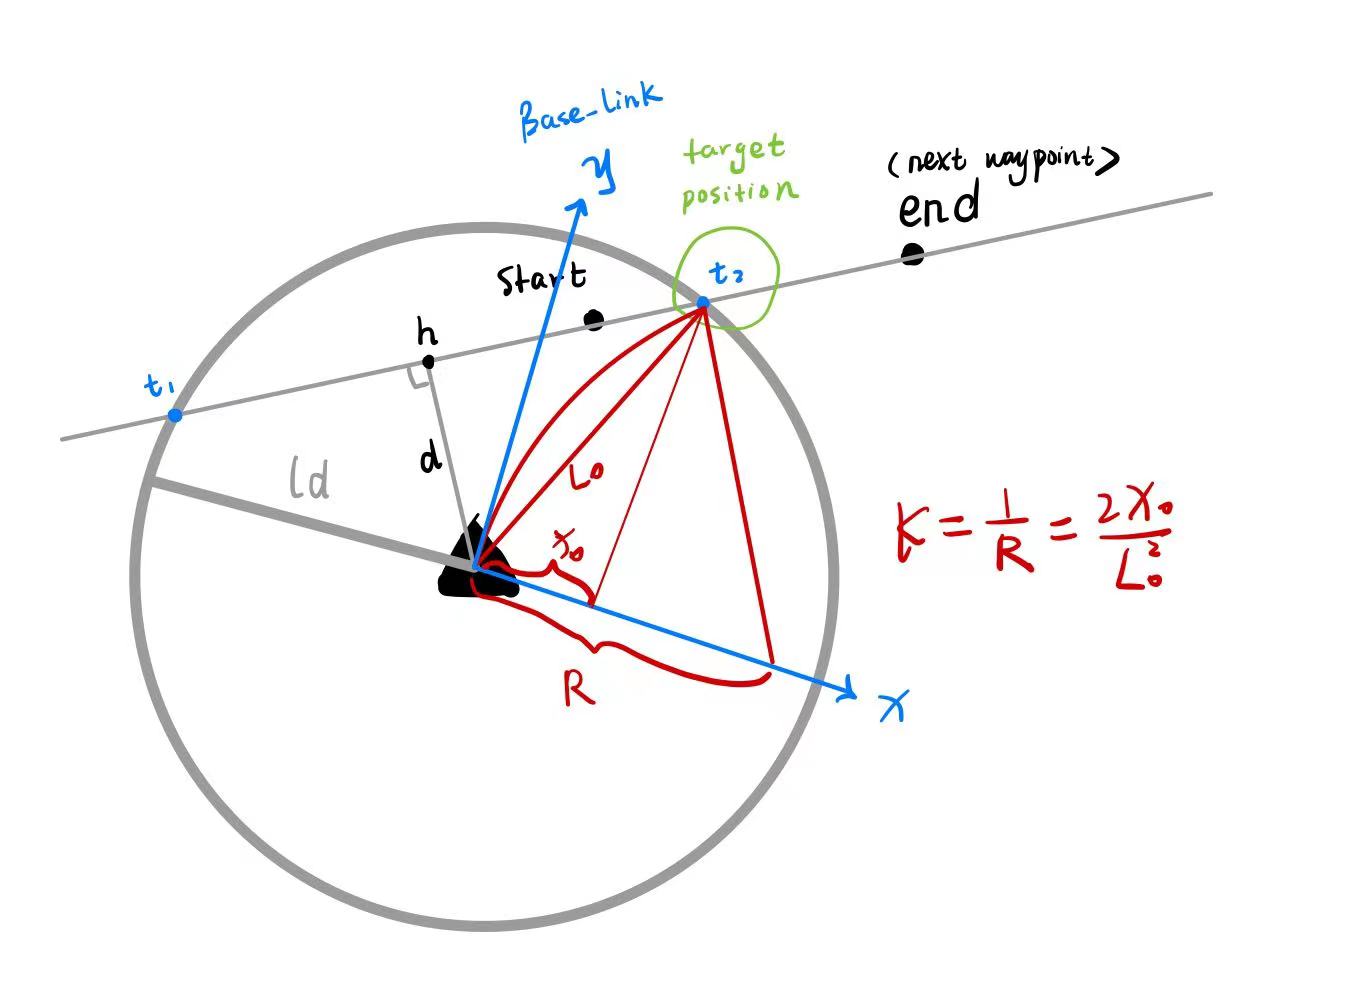 Base-Link
y
target
position
(next waypoint>
end
Start
t₂
h
t₁
d
ld
L₀
x₀
R
x
K = 1/R = 2X₀/L₀²